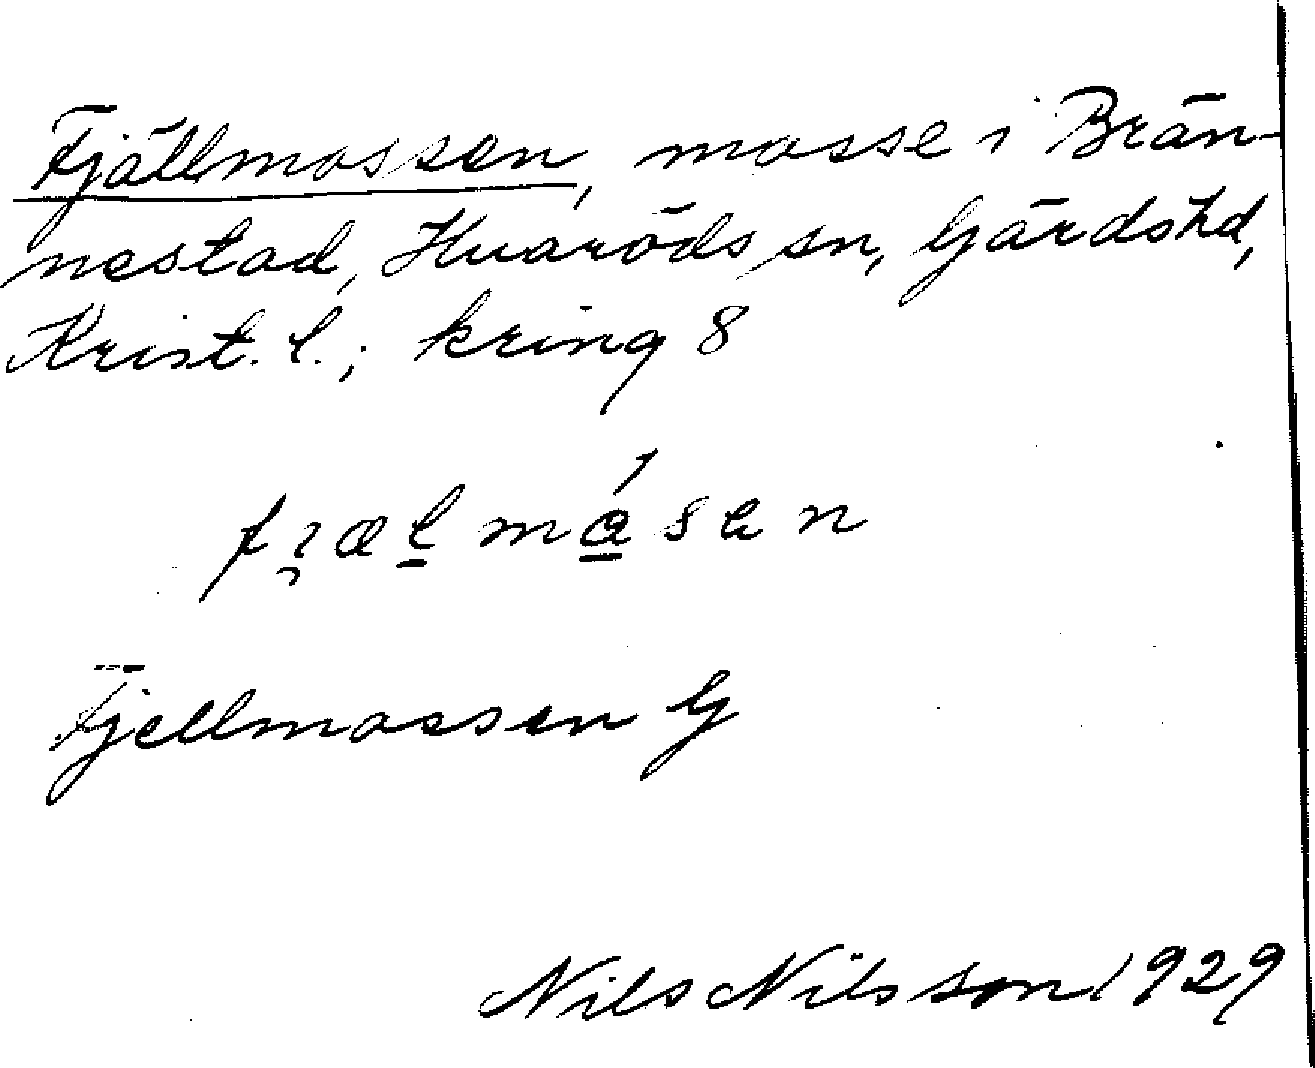 Fjällmossen, mosse i Brän-
nestad, Huaröds sn, Gärds hd,
Krist. l.; kring 8
Fjellmossen G
Nils Nilsson 1929